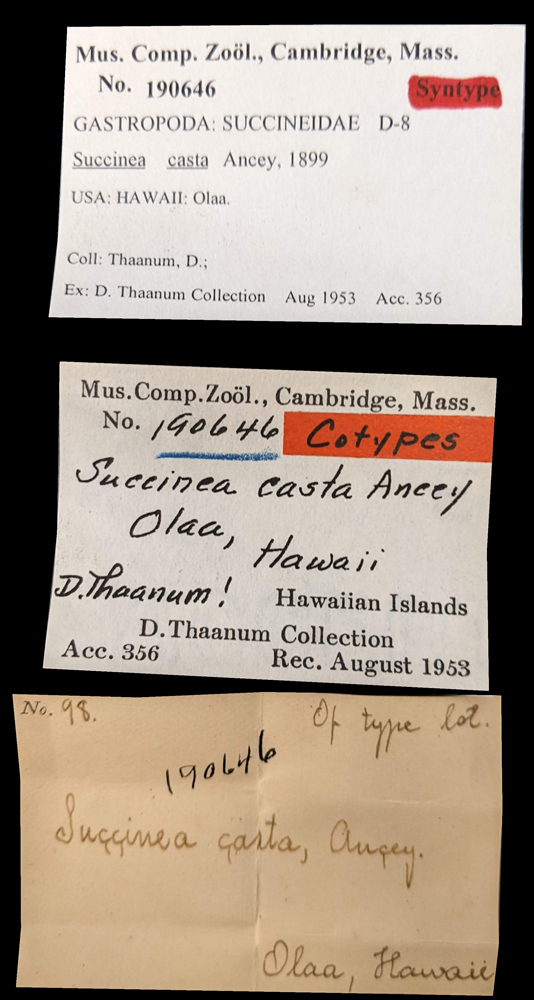 Mus. Comp. Zoöl., Cambridge, Mass.
No. 190646 Syntype
GASTROPODA: SUCCINEIDAE D-8
Succinea casta Ancey, 1899
USA: HAWAII: Olaa.
Coll: Thaanum, D.;
Ex: D. Thaanum Collection Aug 1953 Acc. 356
Mus.Comp.Zoöl., Cambridge, Mass.
No. 190646 Cotypes
Succinea casta Ancey
Olaa, Hawaii
D.Thaanum! Hawaiian Islands
D.Thaanum Collection
Acc. 356 Rec. August 1953
No. 98. Of type lot.
190646
Succinea casta, Ancey.
Olaa, Hawaii